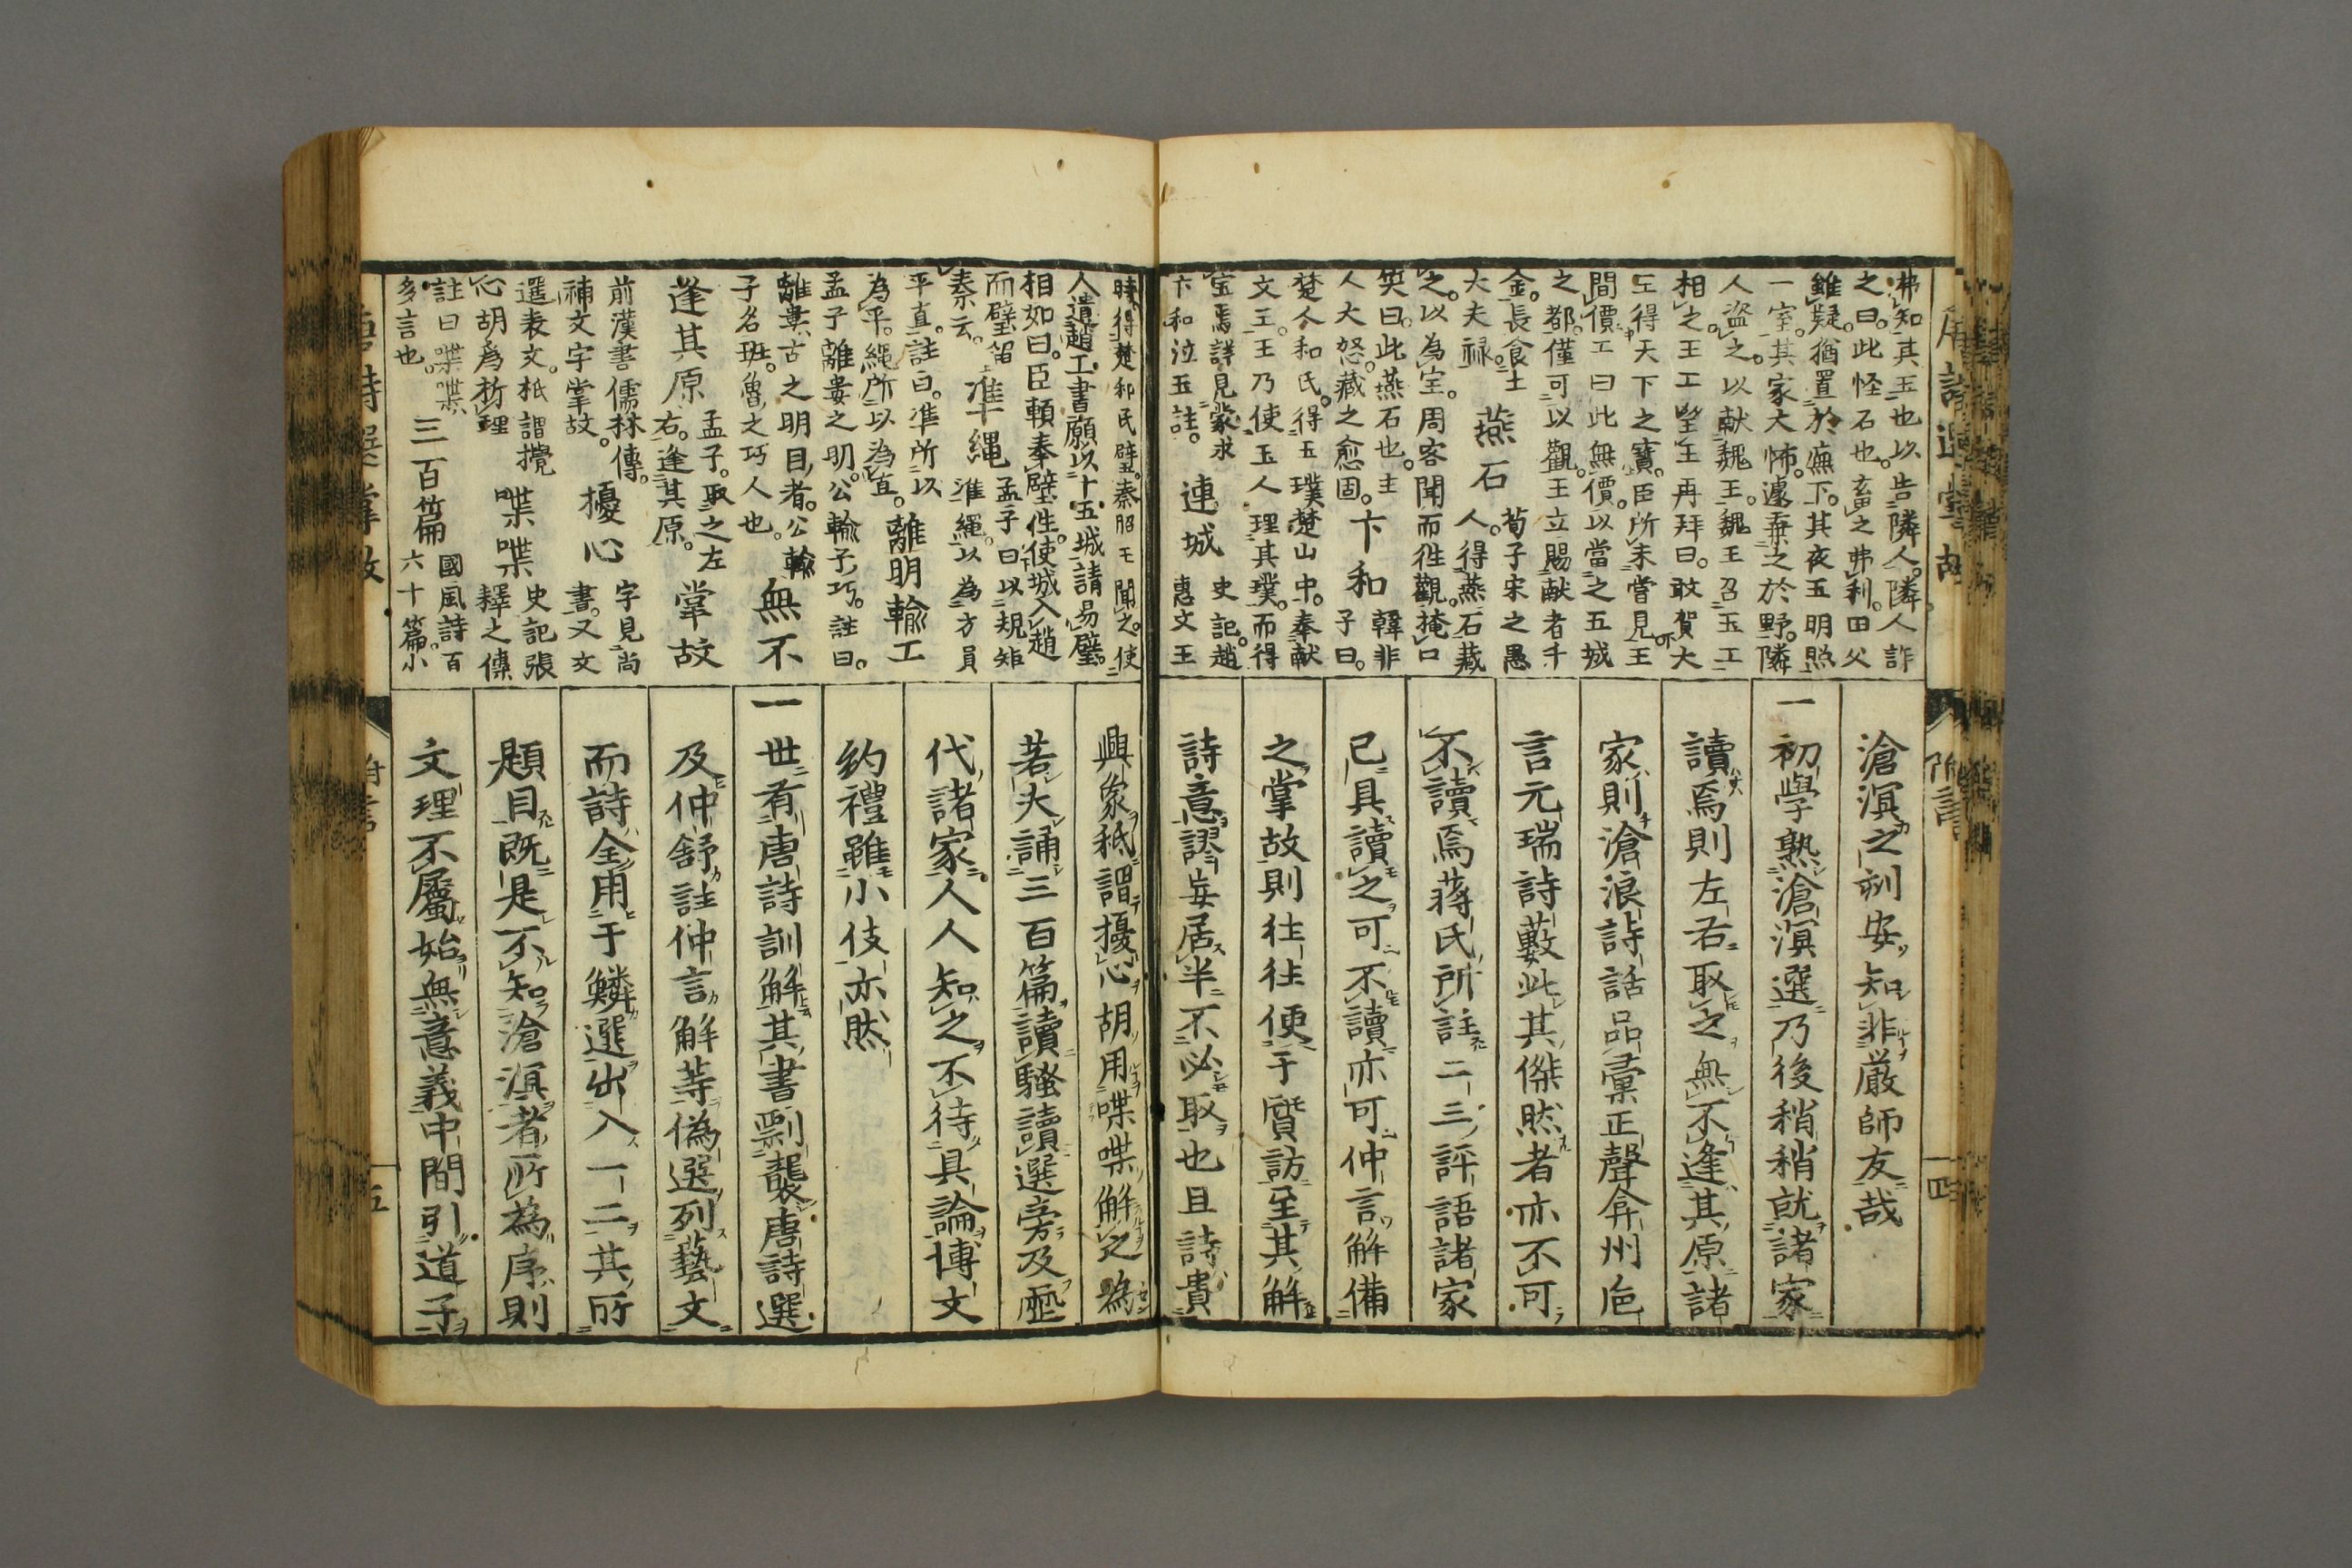 弗知其玉也以告隣人隣人詐
之曰此怪石也畜之弗利田父
雖疑猶置於廡下其夜玉明照
一室其家大怖遽棄之於野隣
人盗之以献魏王魏王召玉工
相之王工望玉再拜曰敢賀大
王得天下之寶臣所未嘗見王
問價工曰此無價以當之五城
之都僅可以觀王立賜献者千
金長食土
大夫禄
燕石
荀子宋之愚
人得燕石藏
之以為宝周客聞而徃觀掩口
笑曰此燕石也主
人大怒藏之愈固
卞和
韓非
子曰
楚人和氏得玉璞楚山中奉献
文王王乃使玉人理其璞而得
宝焉詳見蒙求
卞和泣玉註
連城
史記趙
惠文王
滄溟之刻安知非嚴師友哉
一初學熟滄溟選乃後稍稍就諸家
讀焉則左右取之無不逢其原諸
家則滄浪詩話品彙正聲弇州巵
言元瑞詩藪此其傑然者亦不可
不讀焉蒋氏所註二三評語諸家
已具讀之可不讀亦可仲言解備
之掌故則往往便于質訪至其解
詩意謬妄居半不必取也且詩貴
唐詩選掌故
附言
一四
時得楚和氏璧秦昭王聞之使
人遺趙王書願以十五城請易璧
相如曰臣願奉璧徃使城入趙
而璧留
秦云
準縄
孟子曰以規矩
準繩以為方員
平直註曰準所以
為平繩所以為直
離明輸工
孟子離婁之明公輸子巧註曰
離婁古之明目者公輸
子名班魯之巧人也
無不
逢其原
孟子取之左
右逢其原
掌故
前漢書儒林傳
補文字掌故
擾心
字見尚
書又文
選表文祇謂攪
心胡為析理
喋喋
史記張
釋之傳
註曰喋喋
多言也
三百篇
國風詩百
六十篇小
興象秖謂擾心胡用喋喋解之為
若夫誦三百篇讀騷讀選旁及歴
代諸家人人知之不待具論博文
約禮雖小伎亦然
一世有唐詩訓解其書剽襲唐詩選
及仲舒註仲言解等偽選列藝文
而詩全用于鱗選出入一二其所
題目既是不知滄溟者所為序則
文理不屬始無意義中間引道子
唐詩選掌故
附言
一五